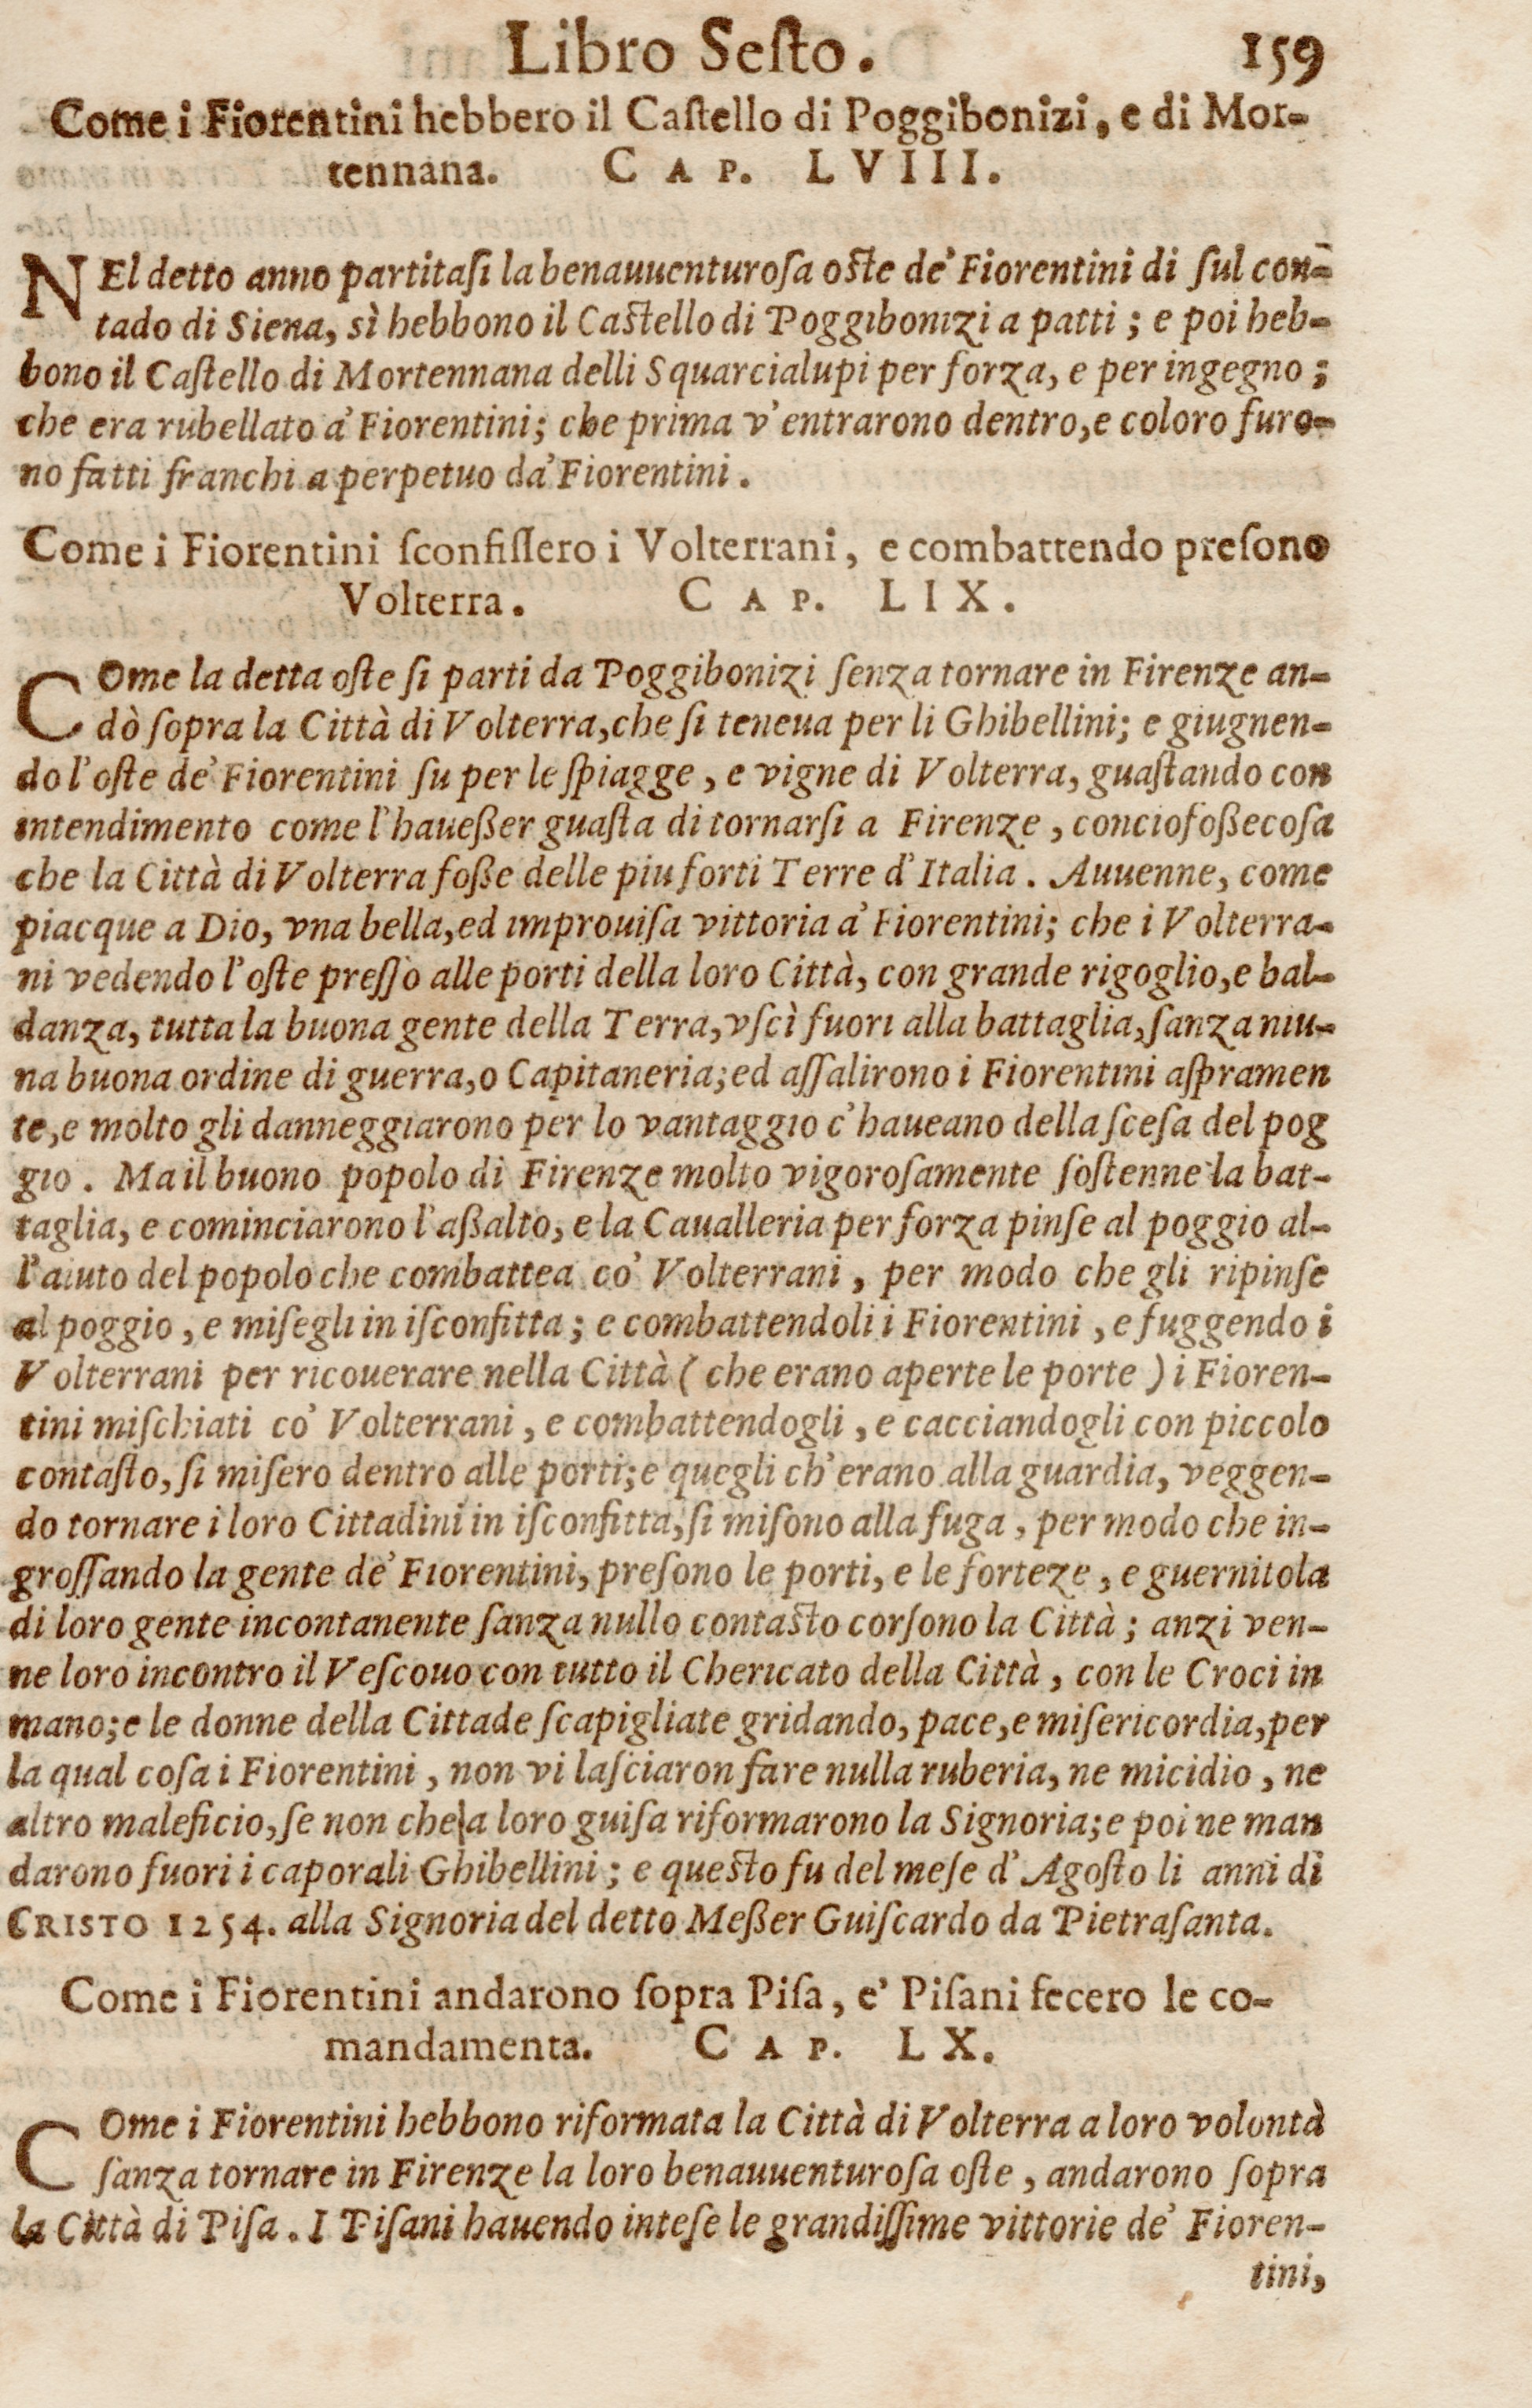 Libro Seſto. 159
Come i Fiorentini hebbero il Caſtello di Poggibonizi, e di Mor-
tennana. CAP. LVIII.
NEl detto anno partitaſi la benauuenturoſa oſte de' Fiorentini di ſul con-
tado di Siena, sì hebbono il Caſtello di Poggibonizi a patti; e poi heb-
bono il Caſtello di Mortennana delli Squarcialupi per forza, e per ingegno;
che era rubellato a' Fiorentini; che prima v'entrarono dentro, e coloro furo-
no fatti franchi a perpetuo da' Fiorentini.
Come i Fiorentini ſconfiſſero i Volterrani, e combattendo preſono
Volterra. CAP. LIX.
COme la detta oſte ſi parti da Poggibonizi ſenza tornare in Firenze an-
dò ſopra la Città di Volterra, che ſi teneua per li Ghibellini; e giugnen-
do l'oſte de' Fiorentini ſu per le ſpiagge, e vigne di Volterra, guaſtando con
intendimento come l'haueßer guaſta di tornarſi a Firenze, conciofoßecoſa
che la Città di Volterra foße delle piu forti Terre d'Italia. Auuenne, come
piacque a Dio, vna bella, ed improuiſa vittoria a' Fiorentini; che i Volterra-
ni vedendo l'oſte preſſo alle porti della loro Città, con grande rigoglio, e bal-
danza, tutta la buona gente della Terra, vſcì fuori alla battaglia, ſanza niu-
na buona ordine di guerra, o Capitaneria; ed aſſalirono i Fiorentini aſpramen
te, e molto gli danneggiarono per lo vantaggio c'haueano della ſceſa del pog
gio. Ma il buono popolo di Firenze molto vigoroſamente ſoſtenne la bat-
taglia, e cominciarono l'aßalto, e la Caualleria per forza pinſe al poggio al-
l'aiuto del popolo che combattea co' Volterrani, per modo che gli ripinſe
al poggio, e miſegli in iſconfitta; e combattendoli i Fiorentini, e fuggendo i
Volterrani per ricouerare nella Città (che erano aperte le porte) i Fioren-
tini miſchiati co' Volterrani, e combattendogli, e cacciandogli con piccolo
contaſto, ſi miſero dentro alle porti; e quegli ch'erano alla guardia, veggen-
do tornare i loro Cittadini in iſconfitta, ſi miſono alla fuga, per modo che in-
groſſando la gente de' Fiorentini, preſono le porti, e le forteze, e guernitola
di loro gente incontanente ſanza nullo contaſto corſono la Città; anzi ven-
ne loro incontro il Veſcouo con tutto il Chericato della Città, con le Croci in
mano; e le donne della Cittade ſcapigliate gridando, pace, e miſericordia, per
la qual coſa i Fiorentini, non vi laſciaron fare nulla ruberia, ne micidio, ne
altro maleficio, ſe non che a loro guiſa riformarono la Signoria; e poi ne man
darono fuori i caporali Ghibellini; e queſto fu del meſe d'Agoſto li anni di
CRISTO 1254. alla Signoria del detto Meßer Guiſcardo da Pietraſanta.
Come i Fiorentini andarono ſopra Piſa, e' Piſani fecero le co-
mandamenta. CAP. LX.
COme i Fiorentini hebbono riformata la Città di Volterra a loro volontà
ſanza tornare in Firenze la loro benauuenturoſa oſte, andarono ſopra
la Città di Piſa. I Piſani hauendo inteſe le grandiſſime vittorie de' Fioren-
tini,